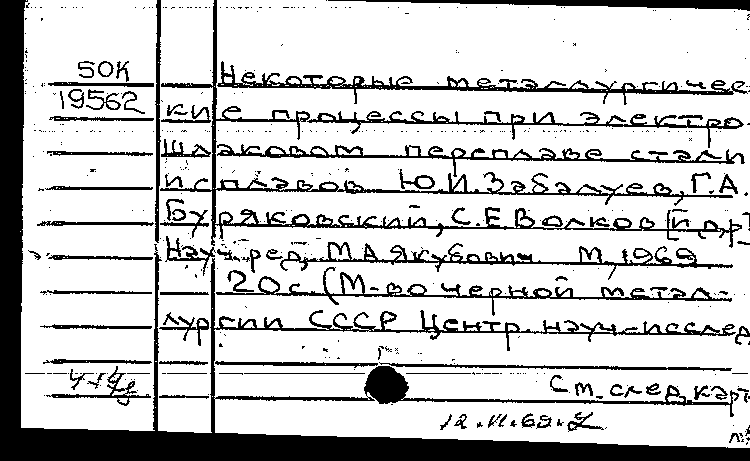 50К Некоторые металлургичес
19562 кие процессы при электро
шлаковом переплаве стали
и сплавов Ю.И.Забалуев, Г.А.
Буряковский, С.Е.Волков [и др]
Науч ред, М.А Якубович М, 1969
20с. (М-во черной метал-
лургии СССР Центр. науч-исслед
См. след, карт
12.VI.69.